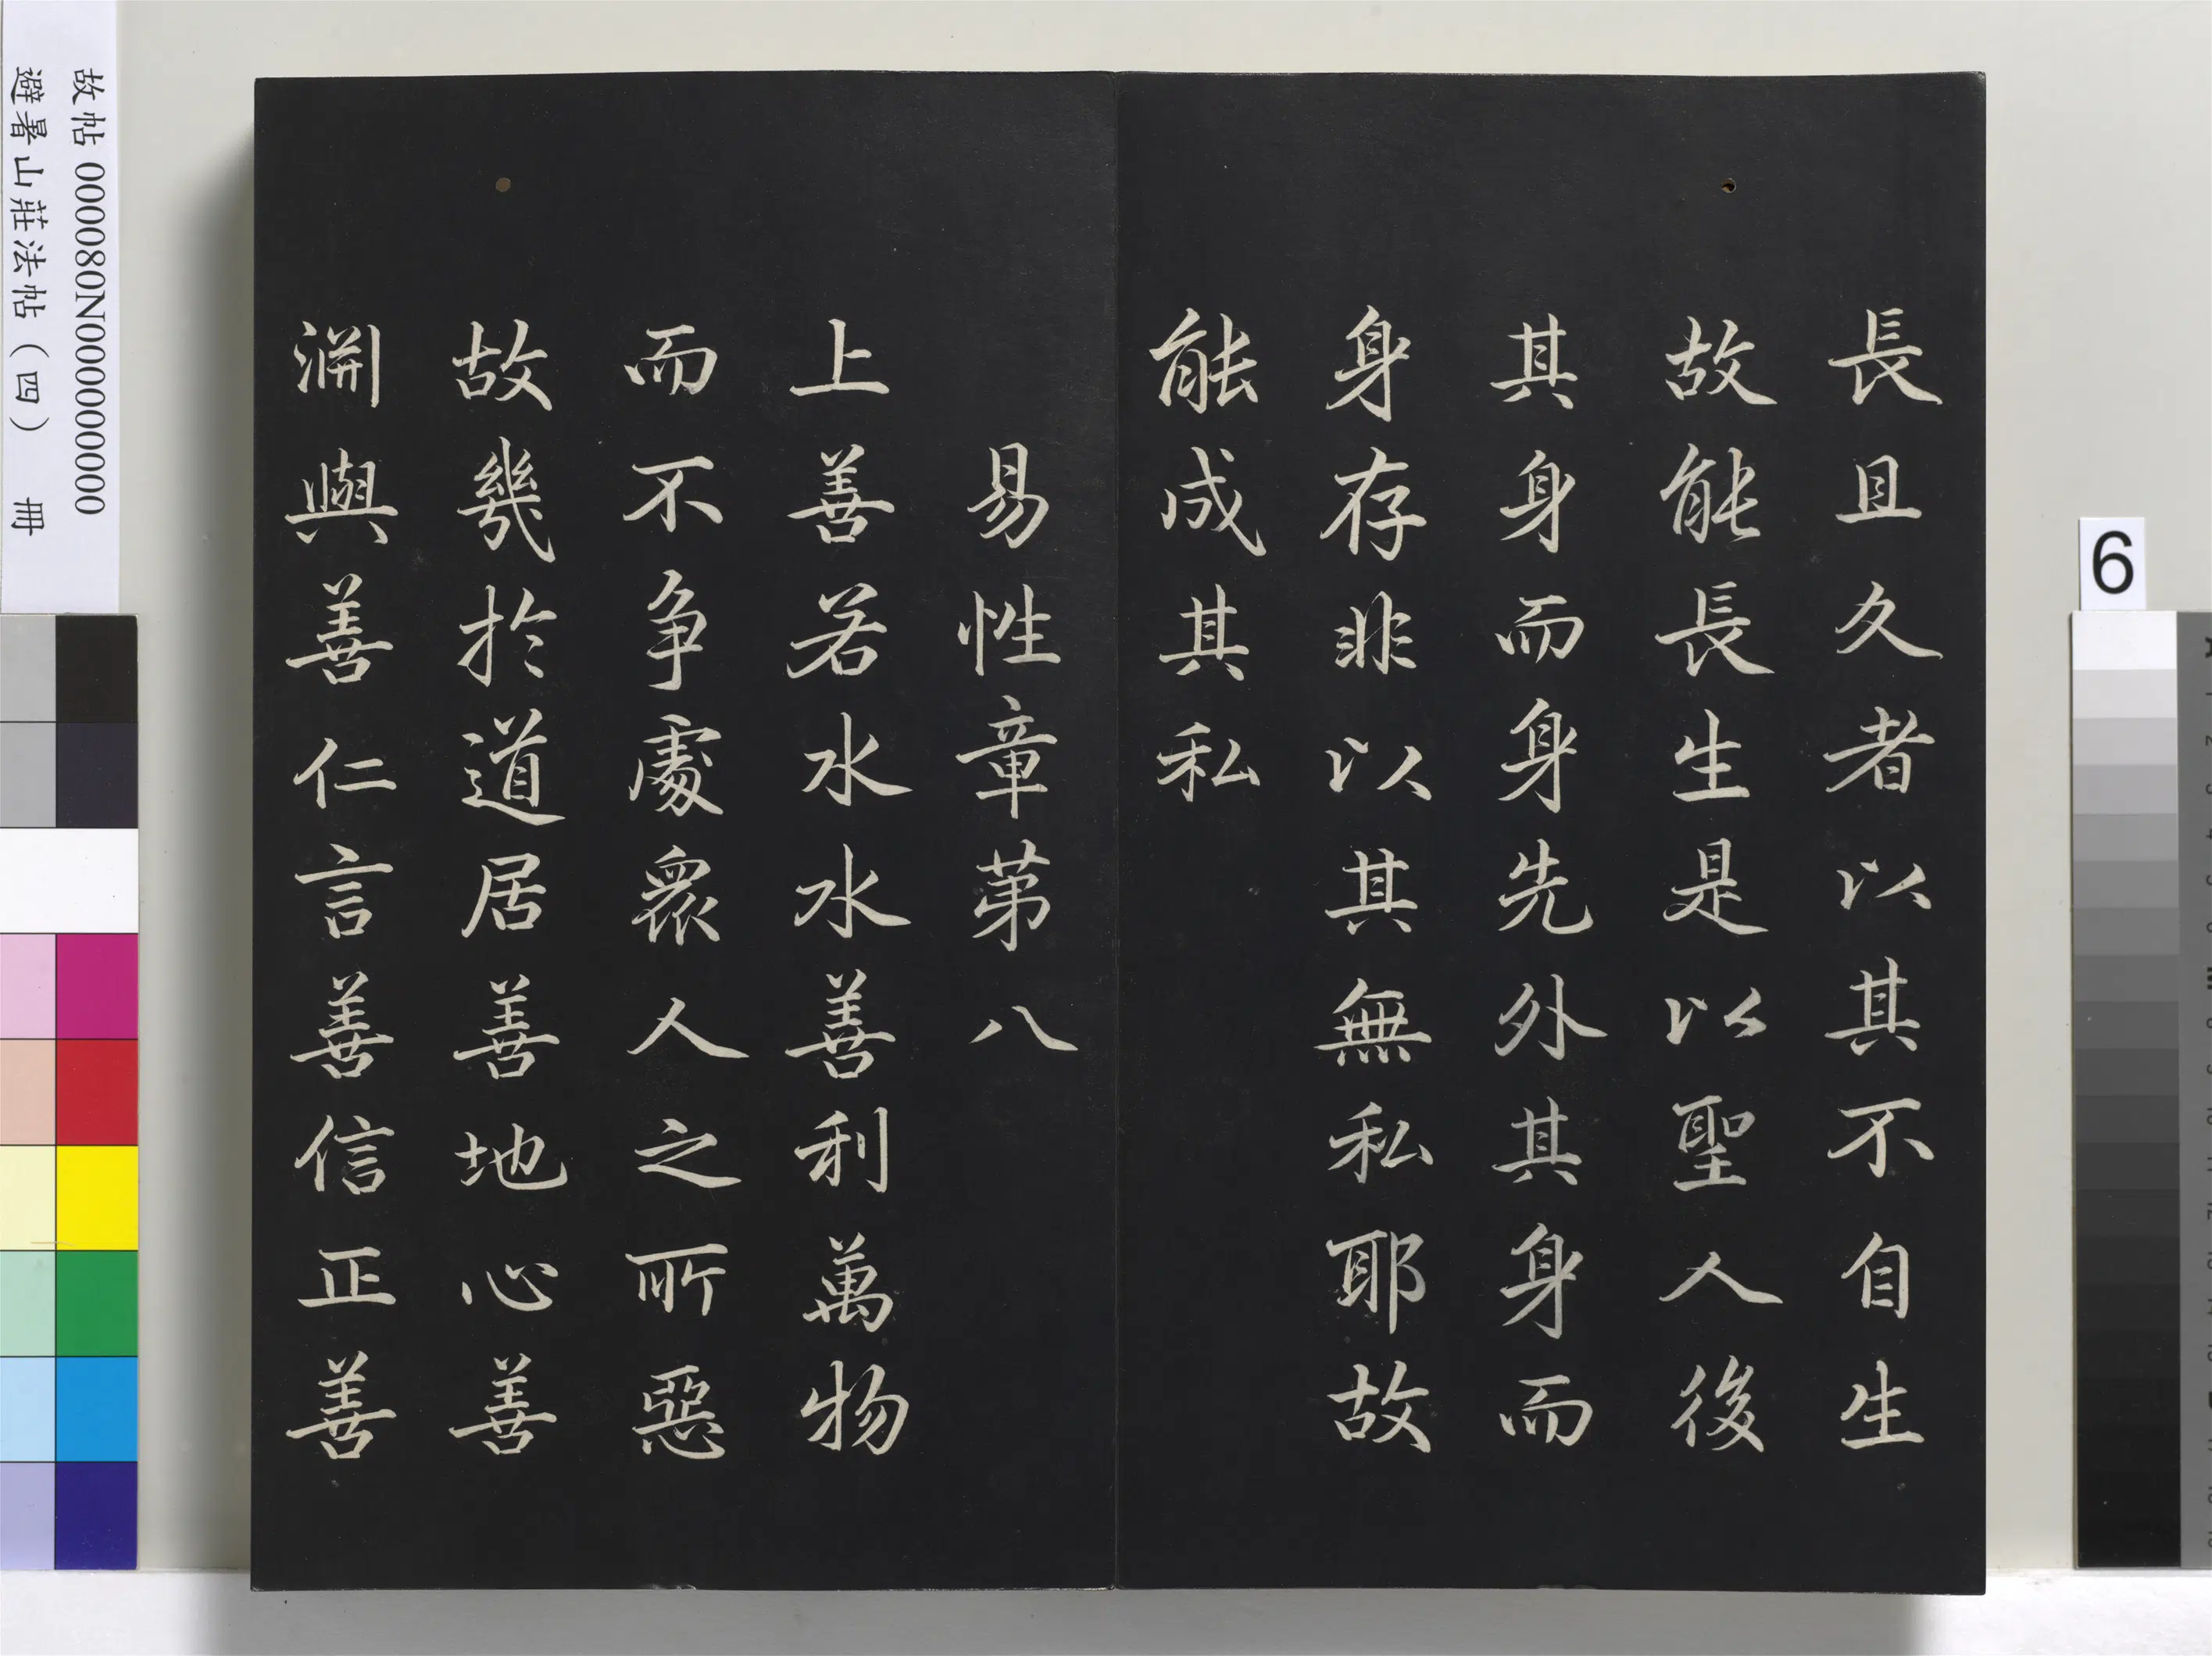 長且久者以其不自生
故能長生是以聖人後
其身而身先外其身而
身存非以其無私耶故
能成其私
易性章苐八
上善若水水善利萬物
而不争處衆人之所惡
故幾於道居善地心善
淵與善仁言善信正善
故帖 000080N000000000
避暑山莊法帖（四） 冊
6